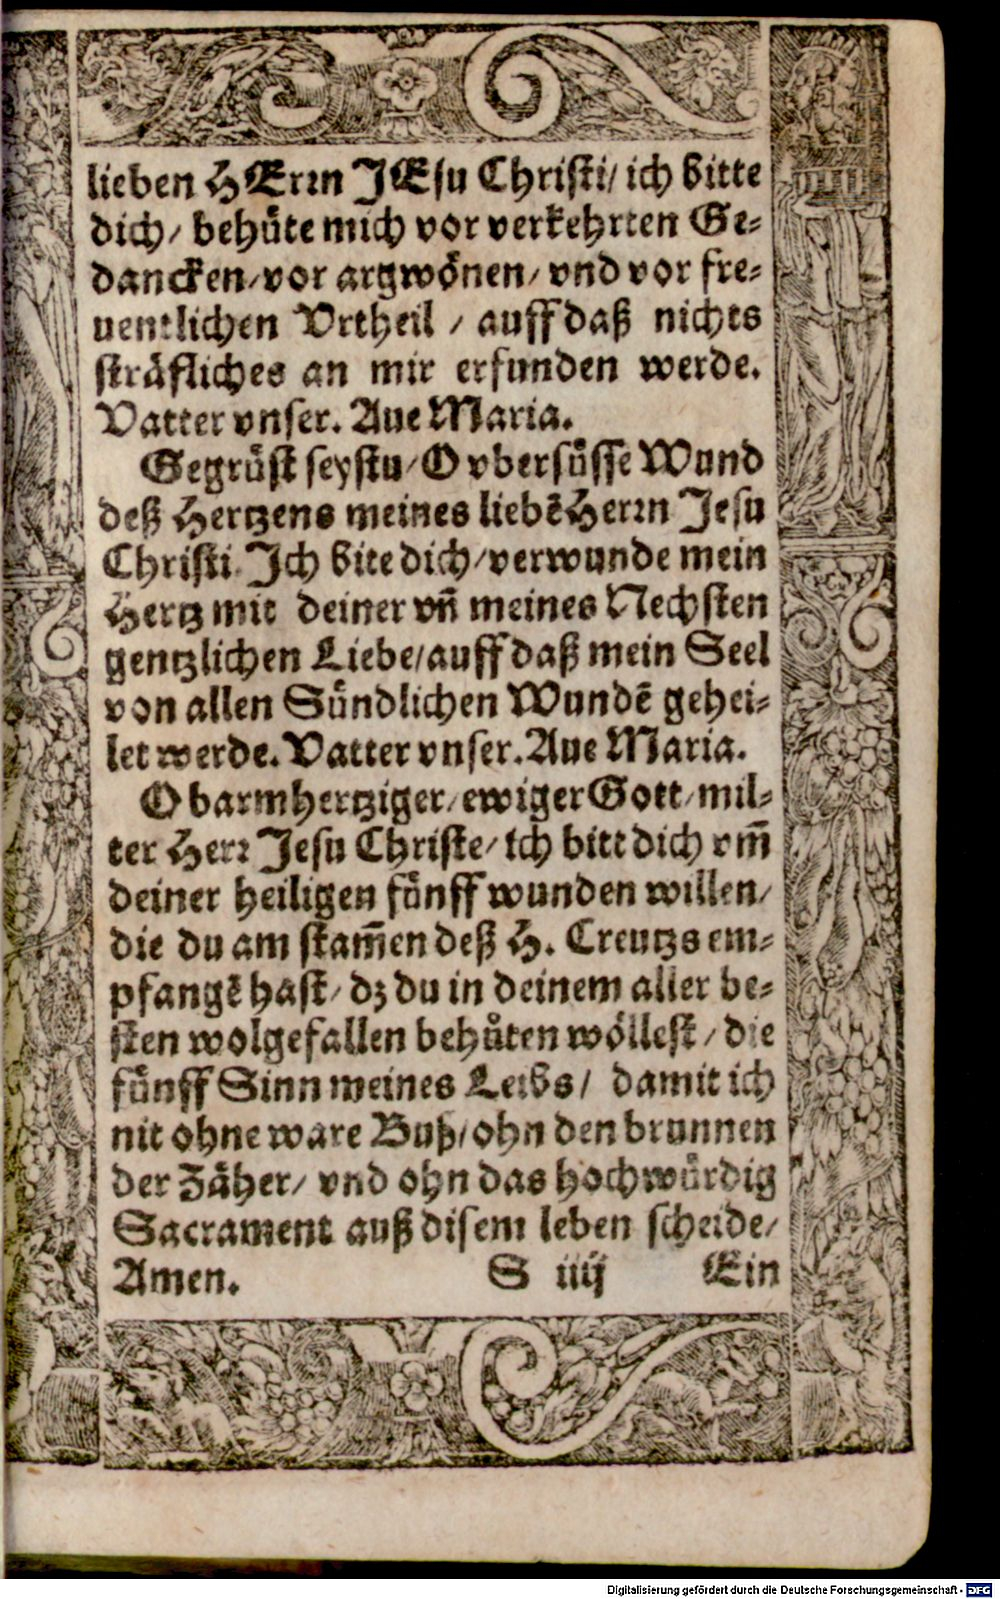 lieben HErꝛn JEsu Christi/ ich bitte
dich/ behuͤte mich vor verkehrten Ge⸗
dancken/ vor argwoͤnen/ vnd vor fre⸗
uentlichen Vrtheil / auff daß nichts
straͤfliches an mir erfunden werde.
Vatter vnser. Aue Maria.
Gegruͤst seystu/ O vbersuͤsse Wund
deß Hertzens meines liebẽ Herꝛn Jesu
Christi. Ich bite dich/ verwunde mein
Hertz mit deiner vñ meines Nechsten
gentzlichen Liebe/ auff daß mein Seel
von allen Suͤndlichen Wundẽ gehei⸗
let werde. Vatter vnser. Aue Maria.
O barmhertziger/ ewiger Gott/ mil⸗
ter Herꝛ Jesu Christe/ ich bitt dich vm̃
deiner heiligen fuͤnff wunden willen/
die du am stam̃en deß H. Creutzs em⸗
pfangẽ hast/ dz du in deinem aller be⸗
sten wolgefallen behuͤten woͤllest/ die
fuͤnff Sinn meines Leibs/ damit ich
nit ohne ware Buß/ ohn den brunnen
der Zaͤher/ vnd ohn das hochwuͤrdig
Sacrament auß disem leben scheide/
Amen. S iiij Ein
Digitalisierung gefördert durch die Deutsche Forschungsgemeinschaft - DFG